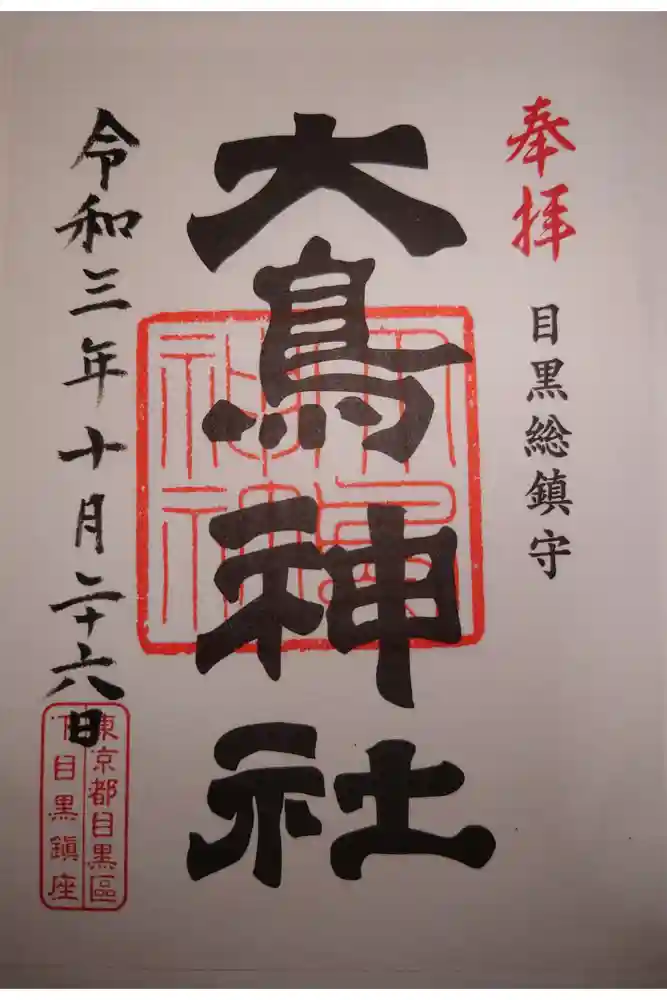 奉拝
目黒総鎮守
大鳥神社
大鳥
神社
令和三年十月二十六日
東京都目黒區
下目黒鎮座